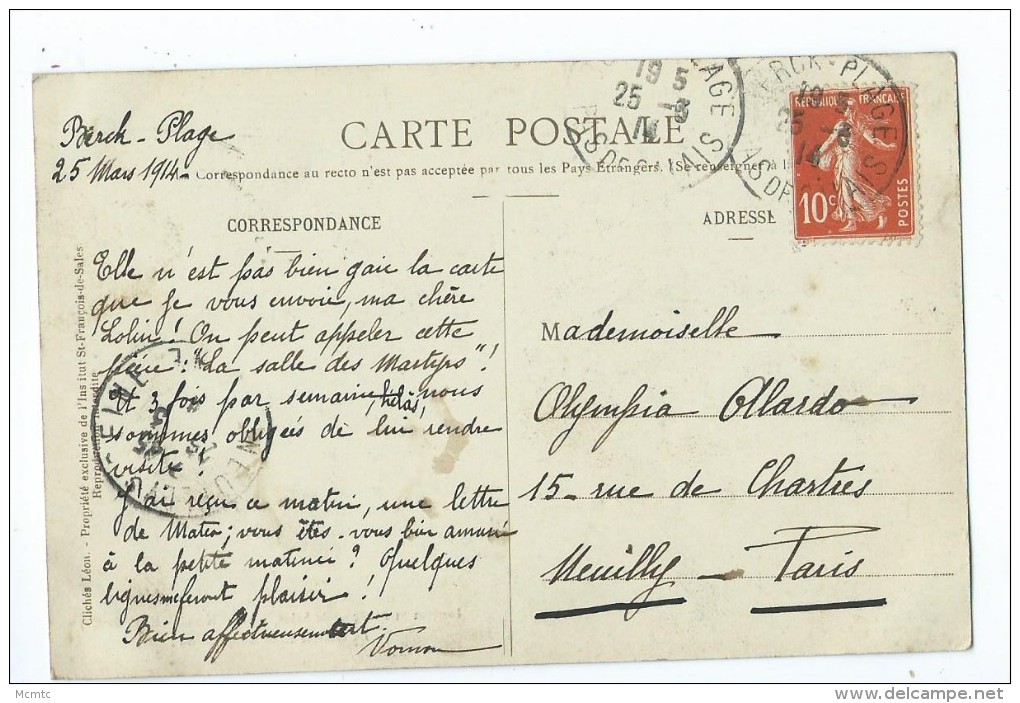 Berck-Plage
25 Mars 1914
CARTE POSTALE
Correspondance au recto n'est pas acceptée par tous les Pays Etrangers. (Se renseigner à la
CORRESPONDANCE
ADRESSE
Elle n'est pas bien gaie la carte
que je vous envoie, ma chère
Lolin! On peut appeler cette
pièce: "La salle des Martyrs"!
Et 3 fois par semaine, hélas, nous
sommes obligées de lui rendre
visite!
J'ai reçu ce matin, une lettre
de Mater; vous êtes-vous bien amusé
à la petite matinée? Quelques
lignes me feront plaisir!
Bien affectueusement.
Mademoiselle
Olympia Allardo
15- rue de Chartres
Neuilly - Paris
Clichés Léon. - Propriété exclusive de l'Institut St-François-de-Sales
Reproduction interdite
REPUBLIQUE FRANÇAISE
10c
POSTES
BERCK-PLAGE
PAS DE CALAIS
19 5
25 -3
14
Mcmtc
http://mcmtc-antiquaire.delcampe.net